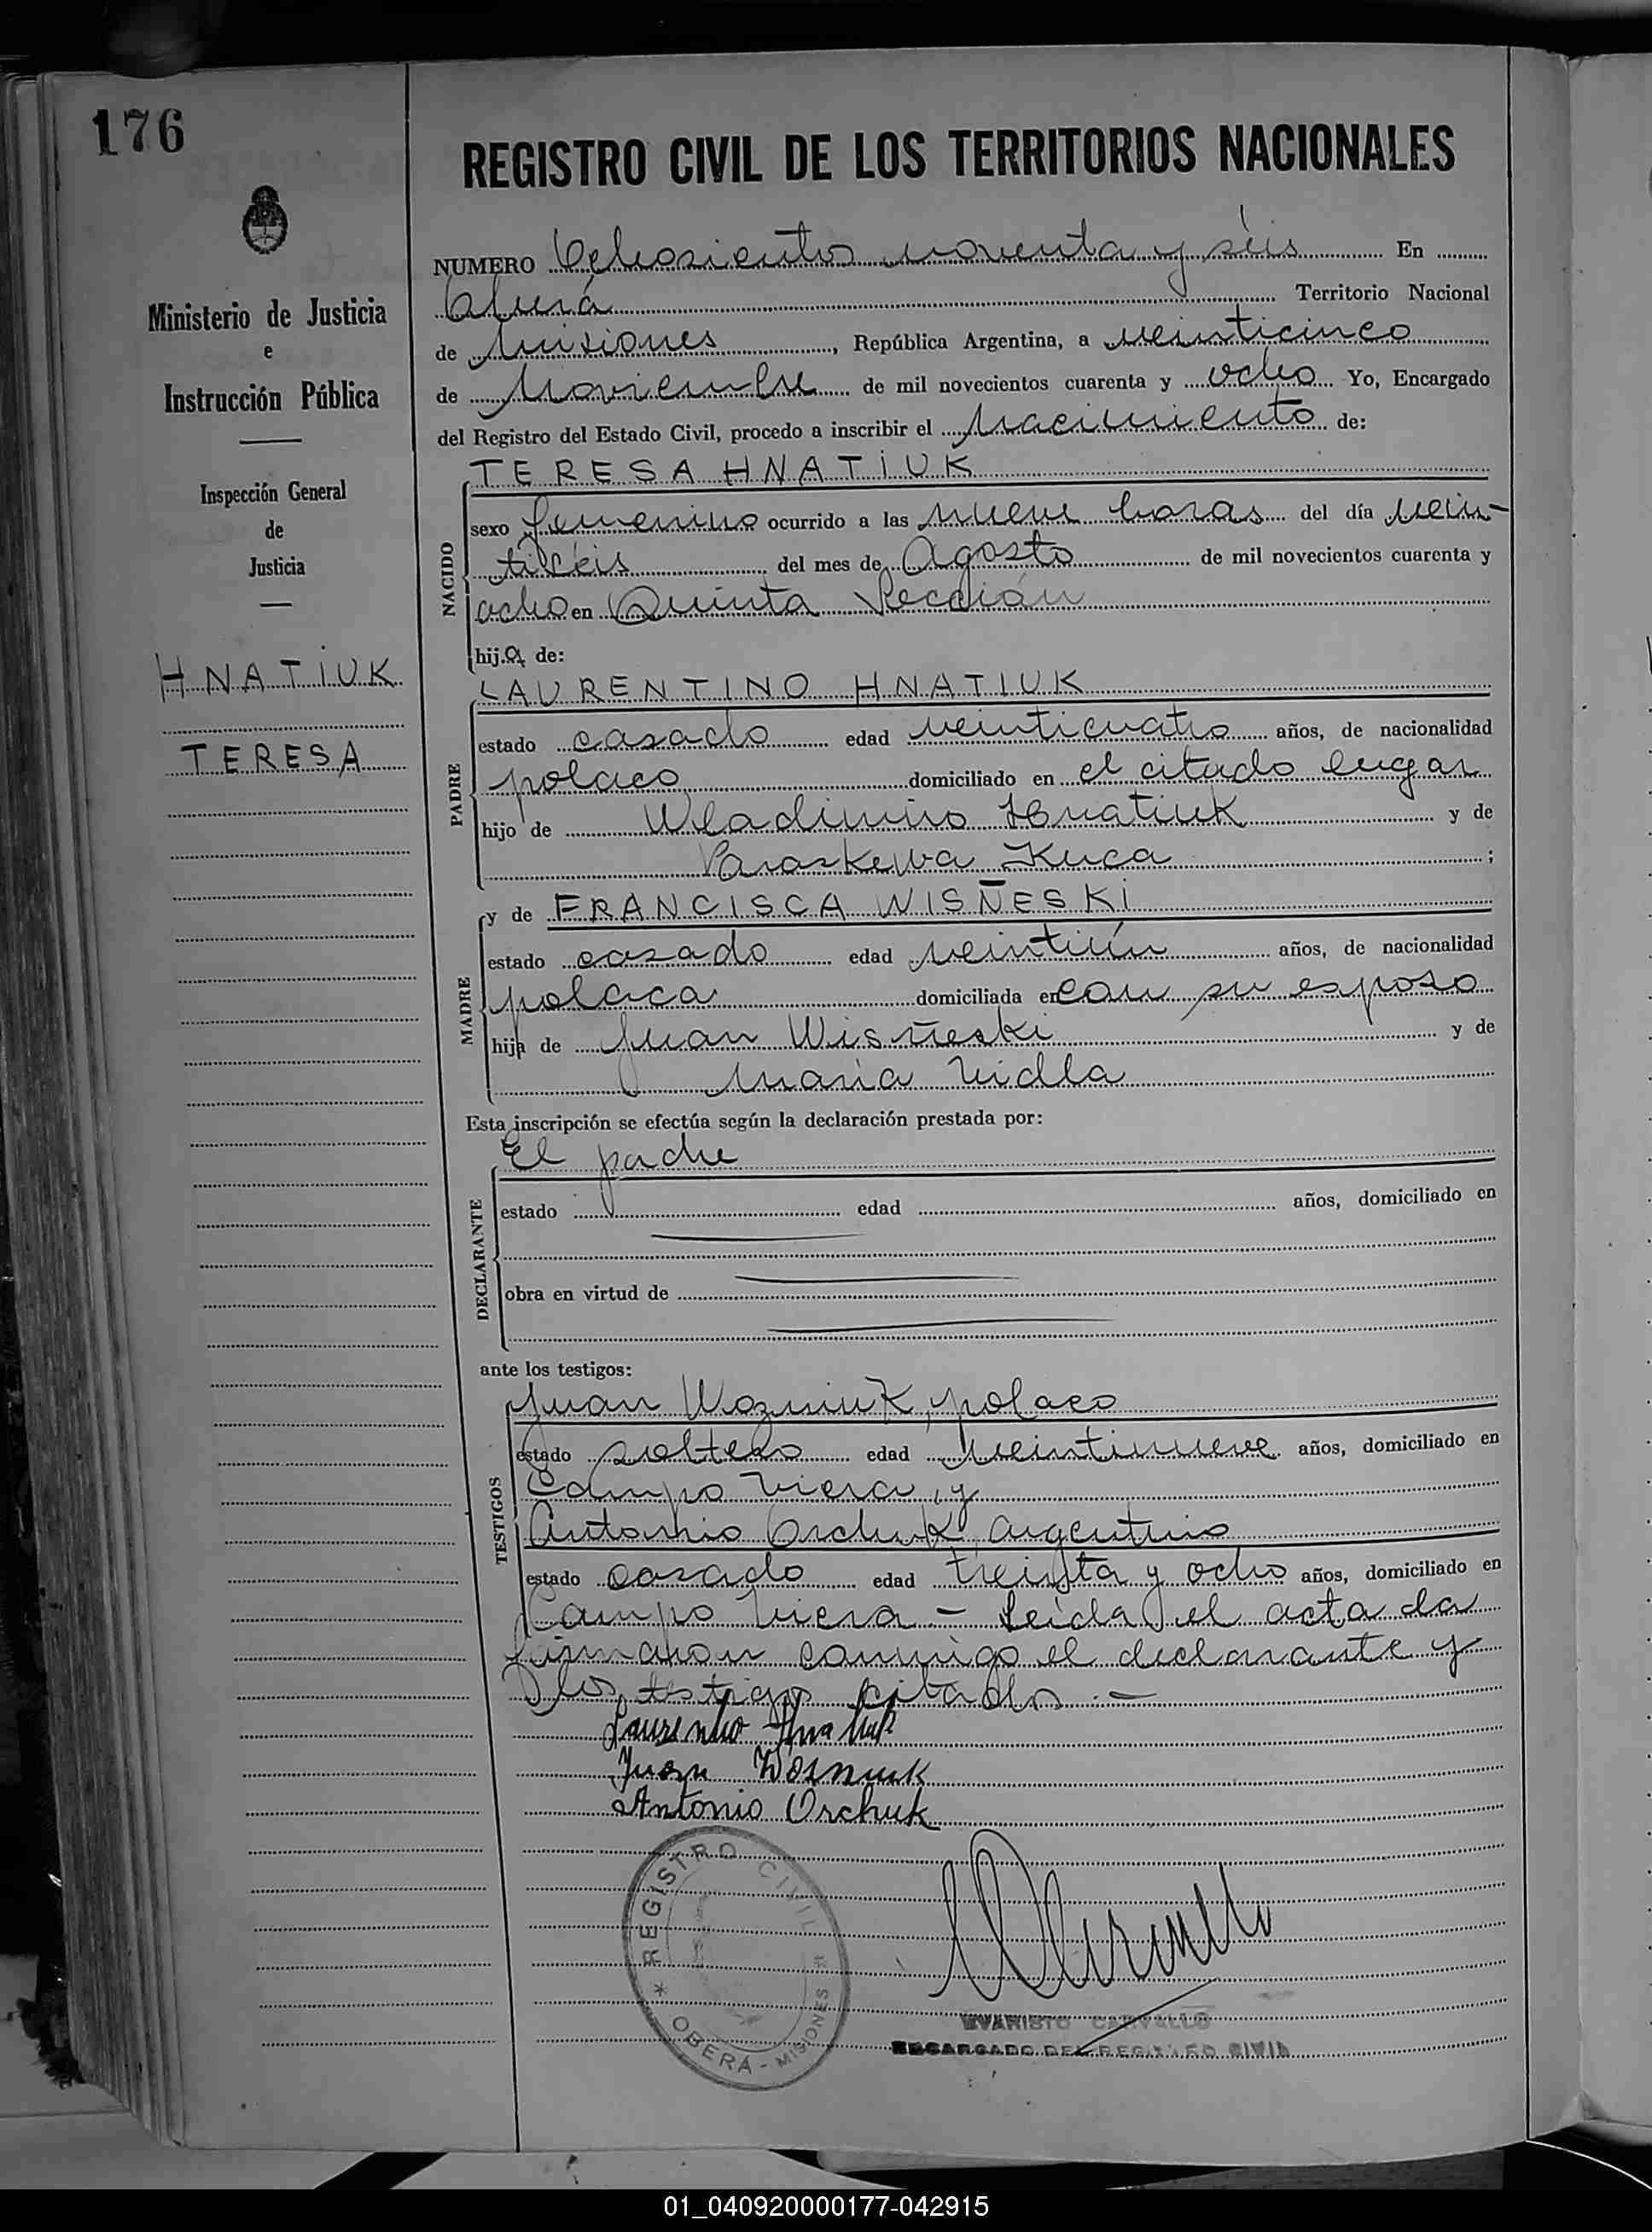 176
REGISTRO CIVIL DE LOS TERRITORIOS NACIONALES
Ministerio de Justicia
e
Instrucción Pública
Inspección General
de
Justicia
HNATIUK
TERESA
NUMERO Ochosientos noventa y séis En
Oberá Territorio Nacional
de Misiones, República Argentina, a veinticinco
de Noviembre de mil novecientos cuarenta y ocho Yo, Encargado
del Registro del Estado Civil, procedo a inscribir el Nacimiento de:
TERESA HNATIUK
NACIDO
sexo femenino ocurrido a las nueve horas del día vein-
tiséis del mes de Agosto de mil novecientos cuarenta y
ocho en Quinta Sección
hija de:
LAURENTINO HNATIUK
PADRE
estado casado edad veinticuatro años, de nacionalidad
polaco domiciliado en el citado lugar
hijo de Wladimiro Hnatiuk y de
Paraskewa Kuca ;
y de FRANCISCA WISÑESKI
MADRE
estado casado edad veintiún años, de nacionalidad
polaca domiciliada en con su esposo
hija de Juan Wisñeski y de
Maria Vidla
Esta inscripción se efectúa según la declaración prestada por:
El padre
DECLARANTE
estado edad años, domiciliado en
obra en virtud de
ante los testigos:
Juan Wozniuk, polaco
TESTIGOS
estado soltero edad veintinueve años, domiciliado en
Campo Viera, y
Antonio Orchuk, argentino
estado casado edad treinta y ocho años, domiciliado en
Campo Viera - Leída el acta la
firmaron conmigo el declarante y
los testigos citados. -
Laurentino Hnatiuk
Juan Wosniuk
Antonio Orchuk
* REGISTRO CIVIL *
OBERÁ - MISIONES
EVARISTO CARVALLO
ENCARGADO DEL REGISTRO CIVIL
01_040920000177-042915